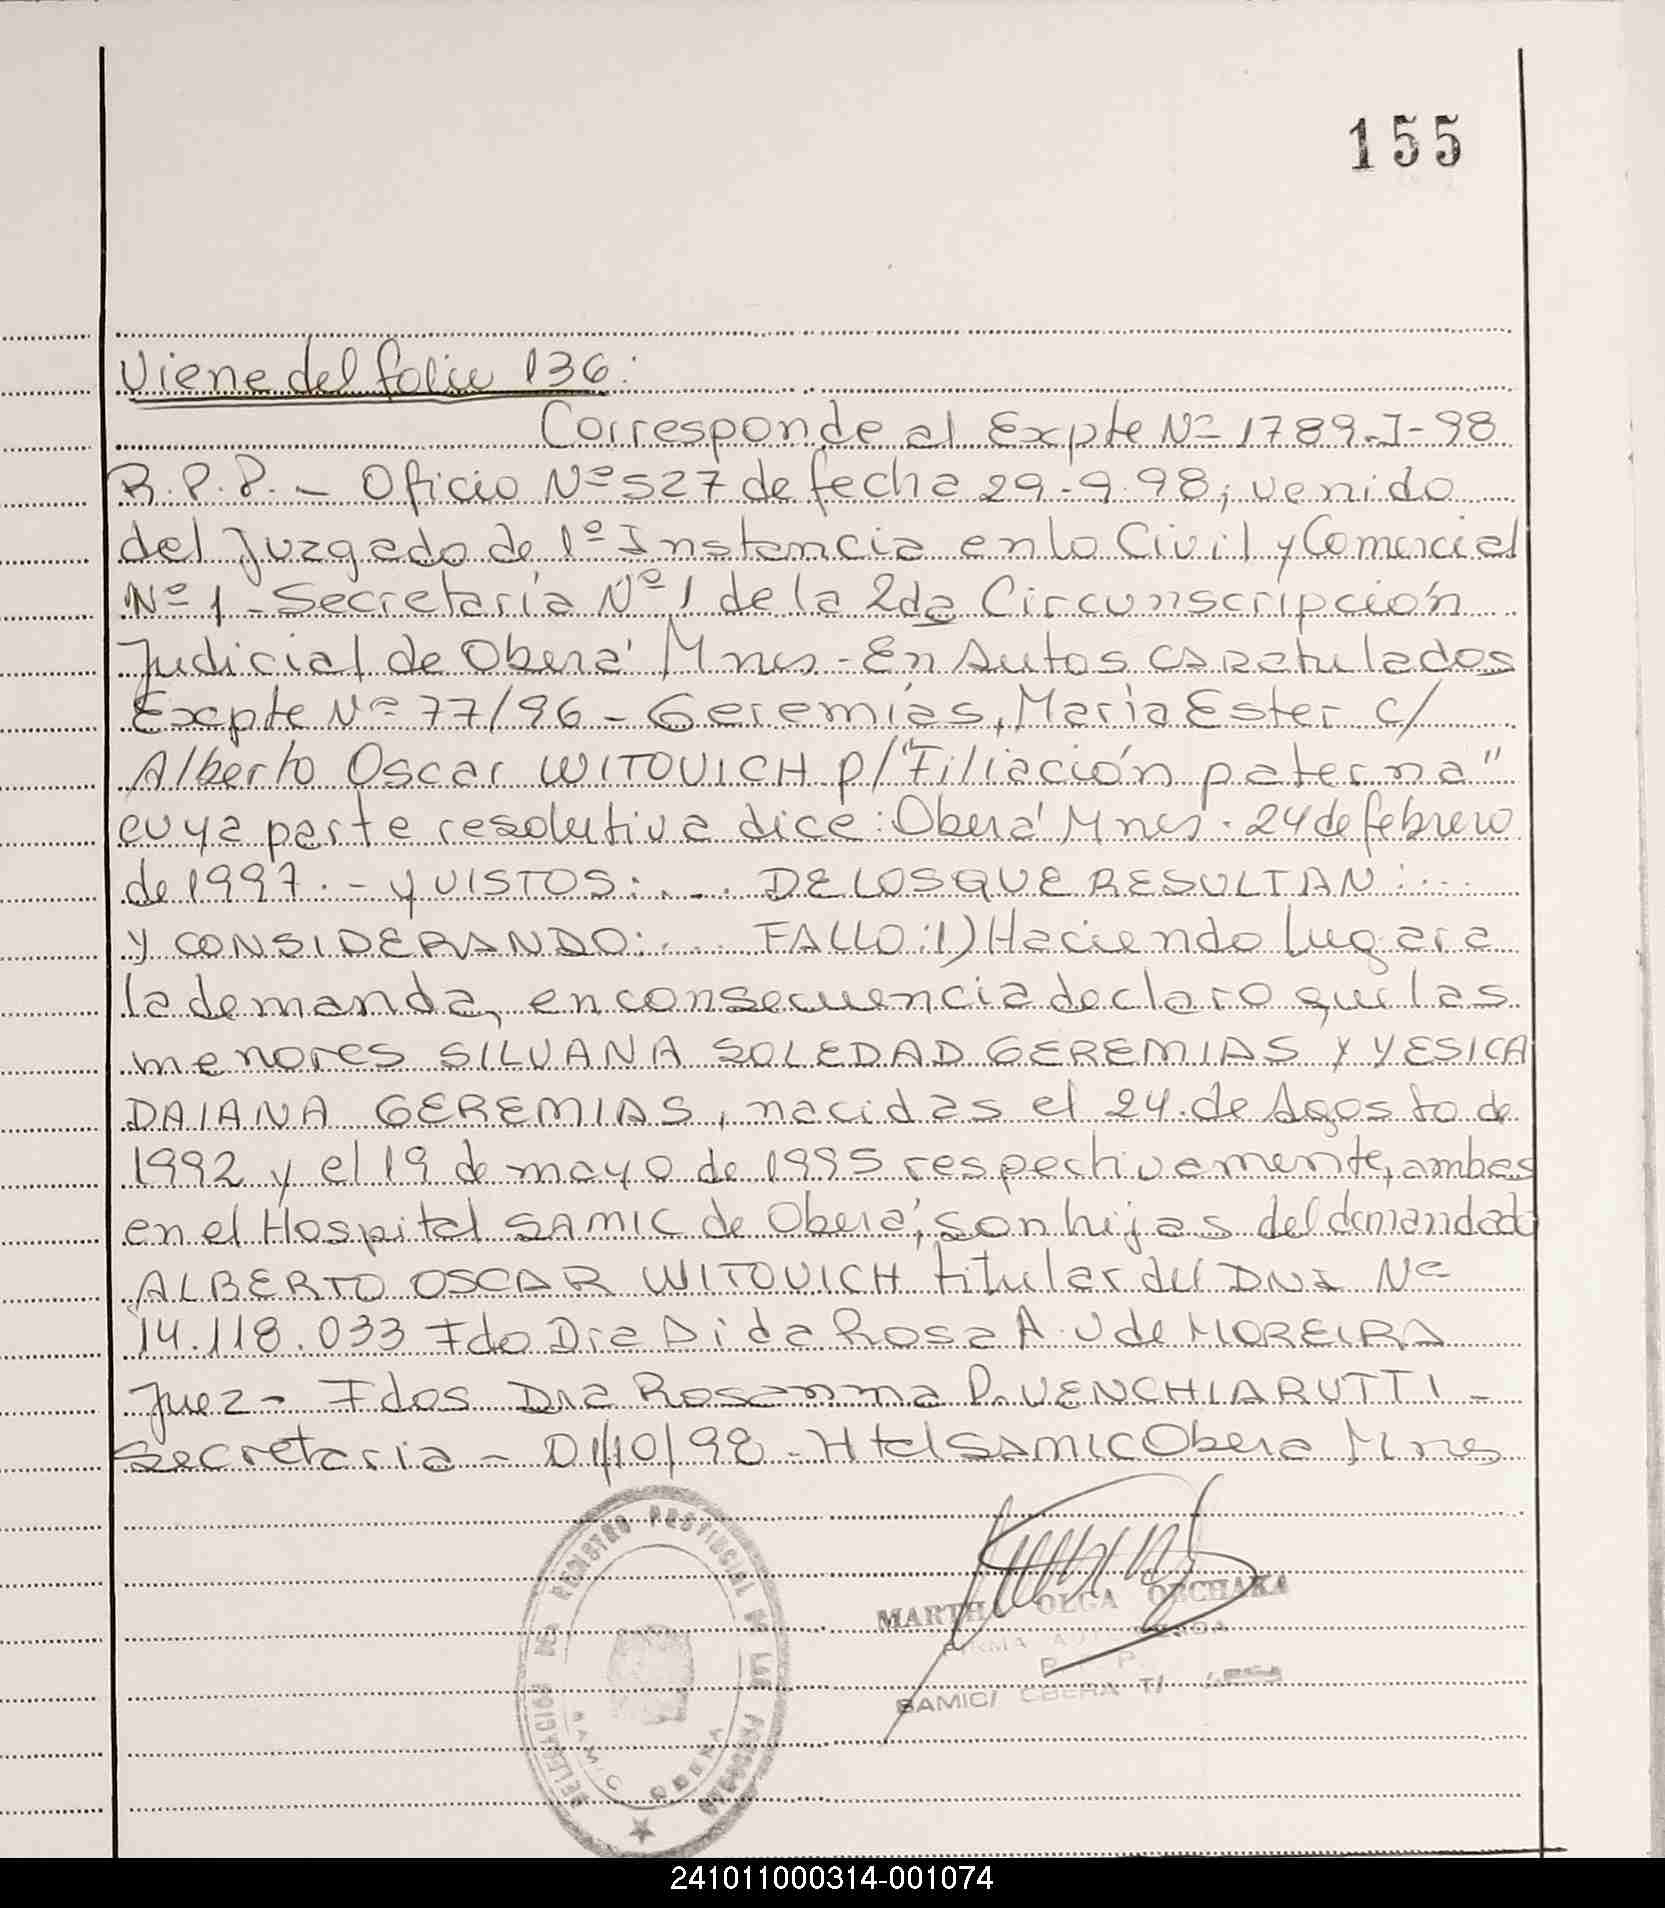 155
Viene del folio 136:
Corresponde al Expte Nº 1789-I-98
R.P.P. - Oficio Nº 527 de fecha 29-9-98, venido
del Juzgado de 1º Instancia en lo Civil y Comercial
Nº 1 - Secretaría Nº 1 de la 2da Circunscripción
Judicial de Oberá Mnes - En Autos caratulados
Excpte Nº 77/96 - Geremías, María Ester c/
Alberto Oscar WITOVICH p/ "Filiación paterna"
cuya parte resolutiva dice: Oberá Mnes. 24 de febrero
de 1997.- y VISTOS: .... DE LOS QUE RESULTAN: ...
Y CONSIDERANDO: .... FALLO: 1) Haciendo lugar a
la demanda, en consecuencia declaro que las
menores SILVANA SOLEDAD GEREMIAS Y YESICA
DAIANA GEREMIAS, nacidas el 24 de Agosto de
1992 y el 19 de mayo de 1995 respectivamente, ambas
en el Hospital SAMIC de Oberá, son hijas del demandado
ALBERTO OSCAR WITOVICH titular del DNI Nº
14.118.033 Fdo Dra Aida Rosa A. V de MOREIRA
Juez - Fdos Dra Rosanna P. VENCHIARUTTI -
Secretaria - 01/10/98 - Htal SAMIC Obera Mnes
DELEGACION DEL REGISTRO PROVINCIAL DE LAS PERSONAS
SAMIC OBERA
MARTHA OLGA OBCHAKA
FIRMA AUTORIZADA
R. P. P.
SAMIC/ OBERA T/
241011000314-001074